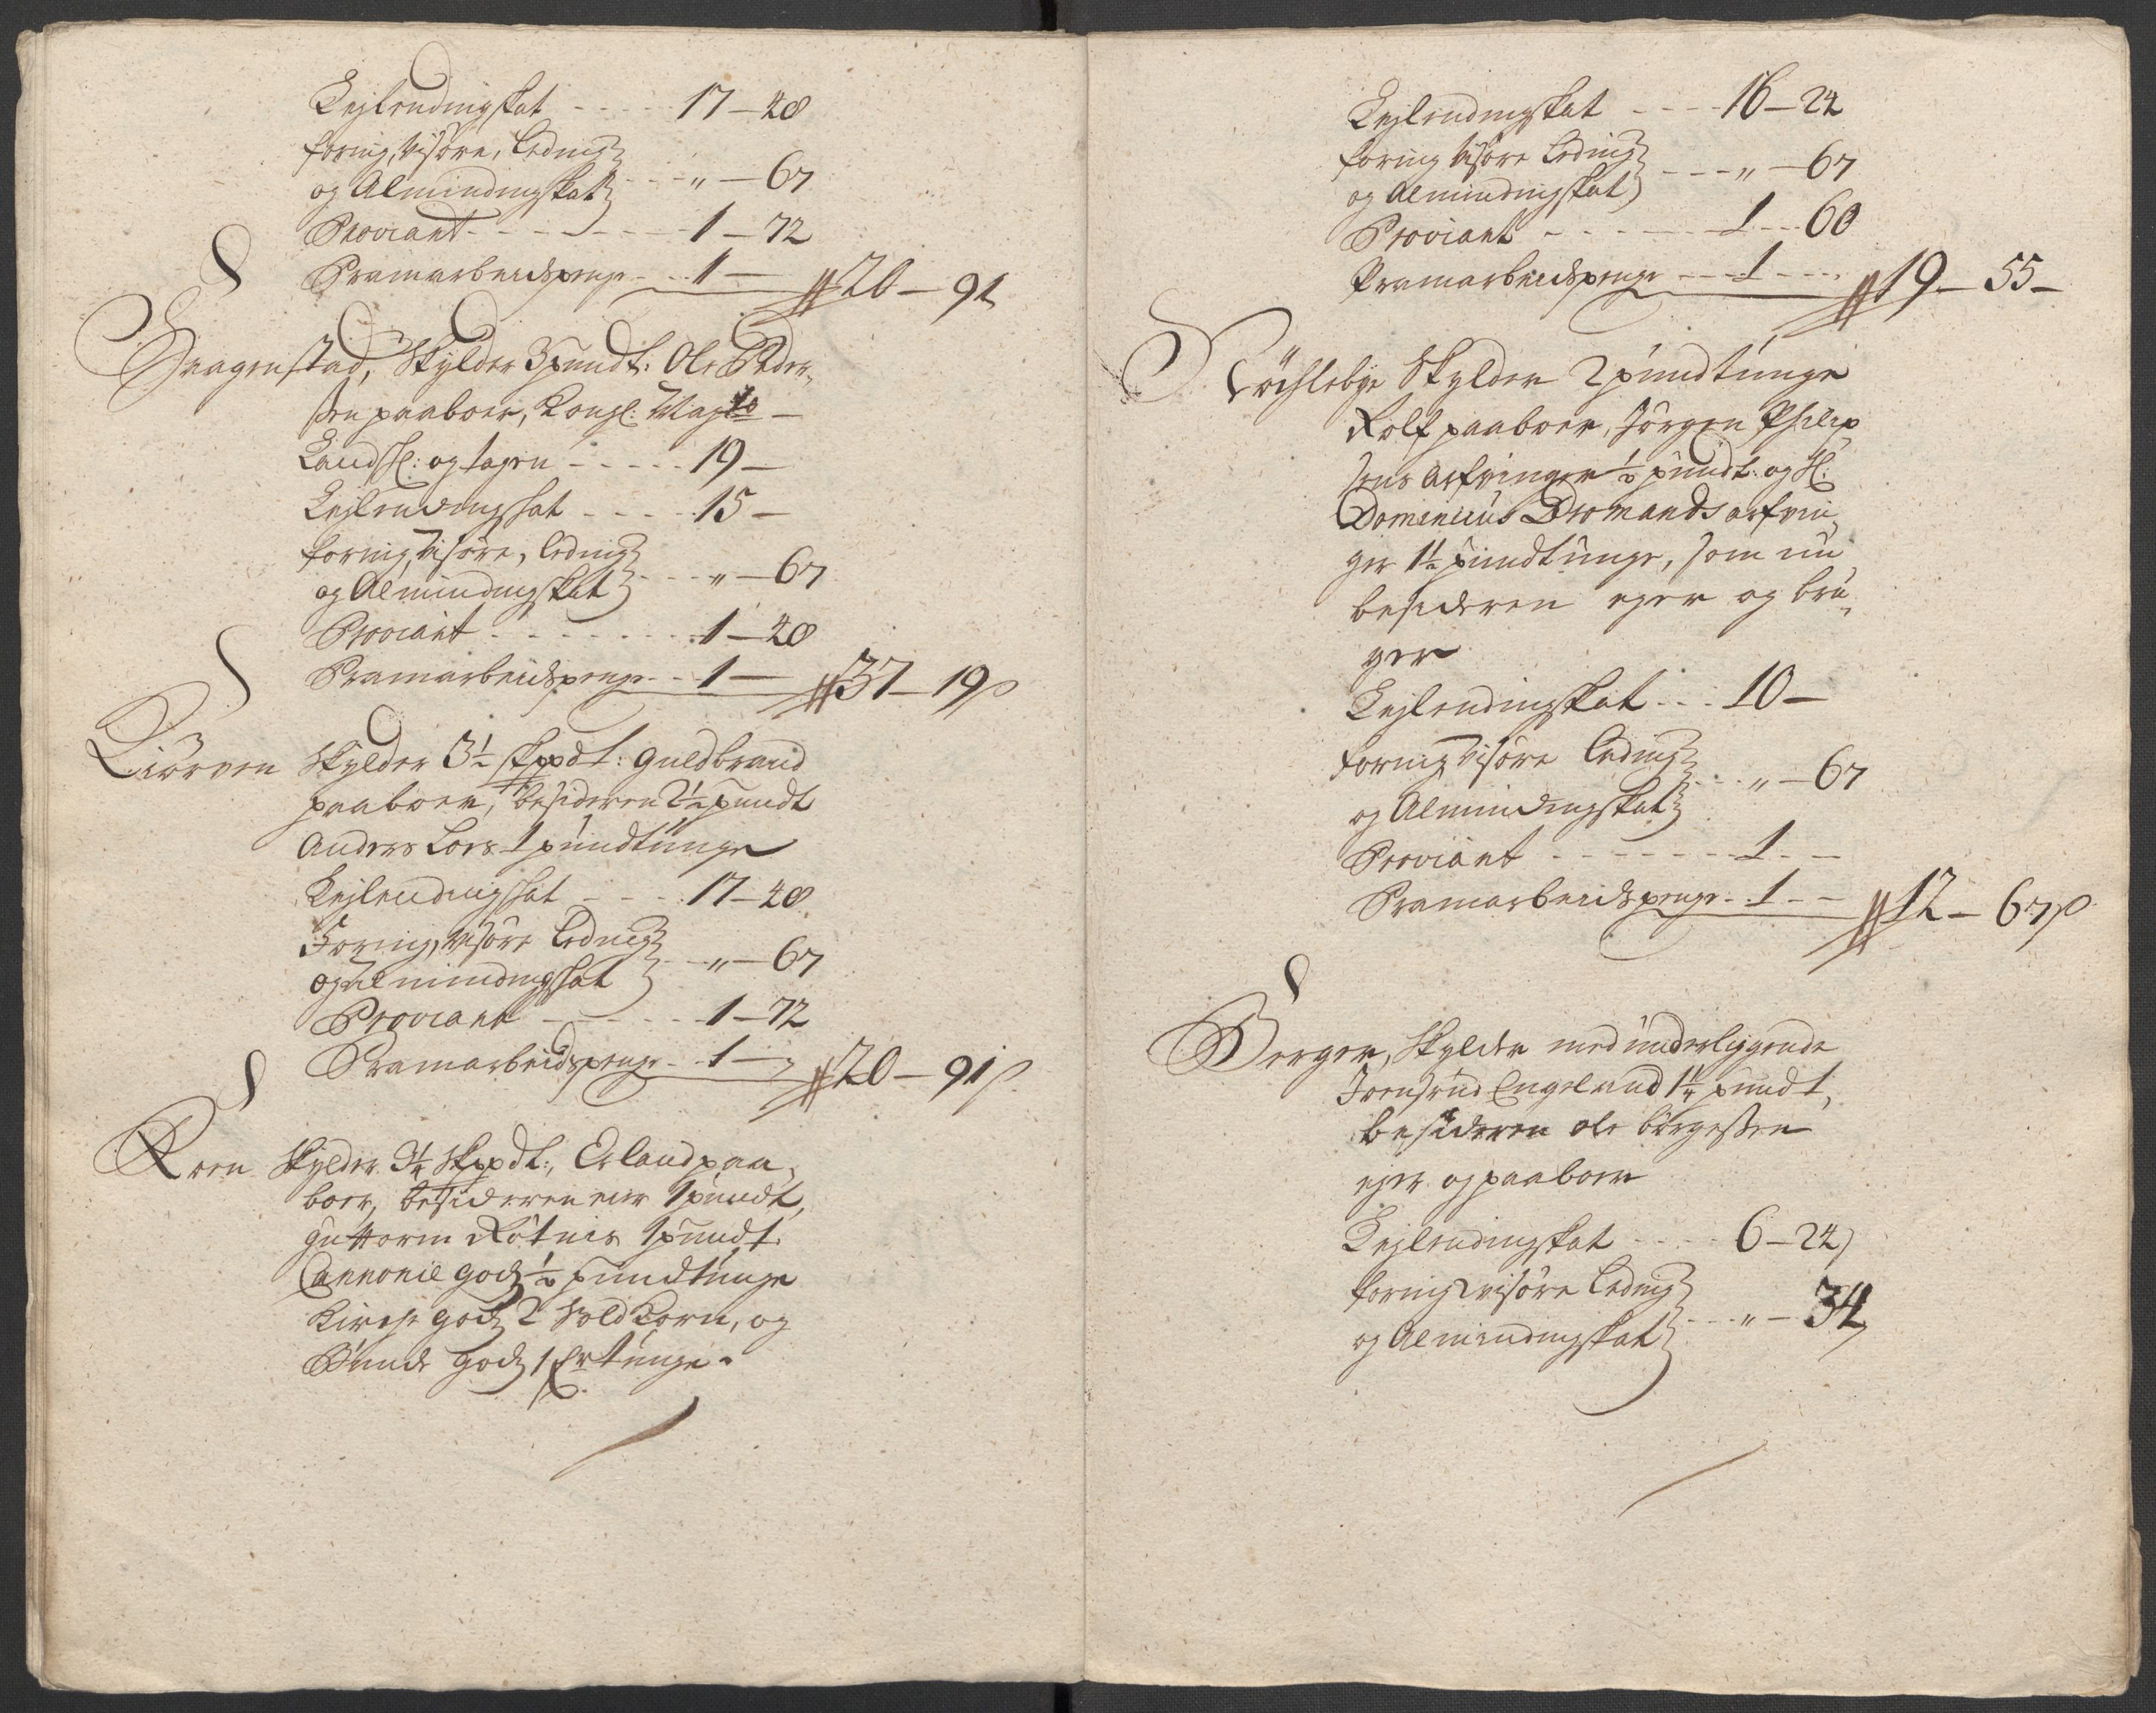 Lejlendingskat - - - - - 17 - 48
foring, Visøre, Leding
og Almindingskat - - - „ - 67
Proviant - - - - - - - 1 - 72
Pramarbeidspenge - - - 1 - 20 - 91
Haagenstad, Skylder 3 pundt: Ole Peder-
sen paaboer, Kongl: Mayts
Landsl: og tagen - - - - - 19 -
Lejlendingskat - - - - 15 -
foring, Visøre, Leding
og Almindingskat - - - „ - 67
Proviant - - - - - - - 1 - 48
Pramarbeidspenge - - 1 - 37 - 19 s
Kiørven Skylder 3½ Skpdt: Guldbrand
paaboer, besideren 2½ pundt
Anders Loes 1 pundtunge
Lejlendingskat - - - 17 - 48
Foring, Visøre Leding
og Almindingskat - - „ - 67
Proviant - - - - - - 1 - 72
Pramarbeidspenge - - 1 - 20 - 91 s
Roen Skylder 3¼ Skppdt:, Erland paa-
boer, besideren eier 1 pundt,
Guttorm Røtnes 1 pundt
Cannonie godz ½ pundtunge
Kirche godz 2 Sold Korn, og
Bunde godz 1 fertunge.
Lejlendingskat - - - - 16 - 24
foring Visøre Leding
og Almindingskat - - - „ - 67
Proviant - - - - - - 1 - - 60
Pramarbeidspenge - - - 1 - - - 19 - 55 -
Skylder 2 pundtunge
Rolf paaboer, Jørgen Philip
sens Arfvinger ½ pundt: og Sl:
Dominicus Dromands arfvin-
ger 1½ pundtunge, som nu
besideren eger og bru-
ger
Lejlendingskat - - - 10 -
foring Visøre Leding
og Almindingskat - - - „ - 67
Proviant - - - - - - - 1 - -
Pramarbeidspenge - - 1 - - 12 - 67 s
Berger, Skylder med underliggende
Engeland 1¼ pundt,
besideren Ole Børgessen
ejer og paaboer
Lejlendingskat - - - - 6 - 24
foring Visøre Leding
og Almindingskat - - - „ - 34